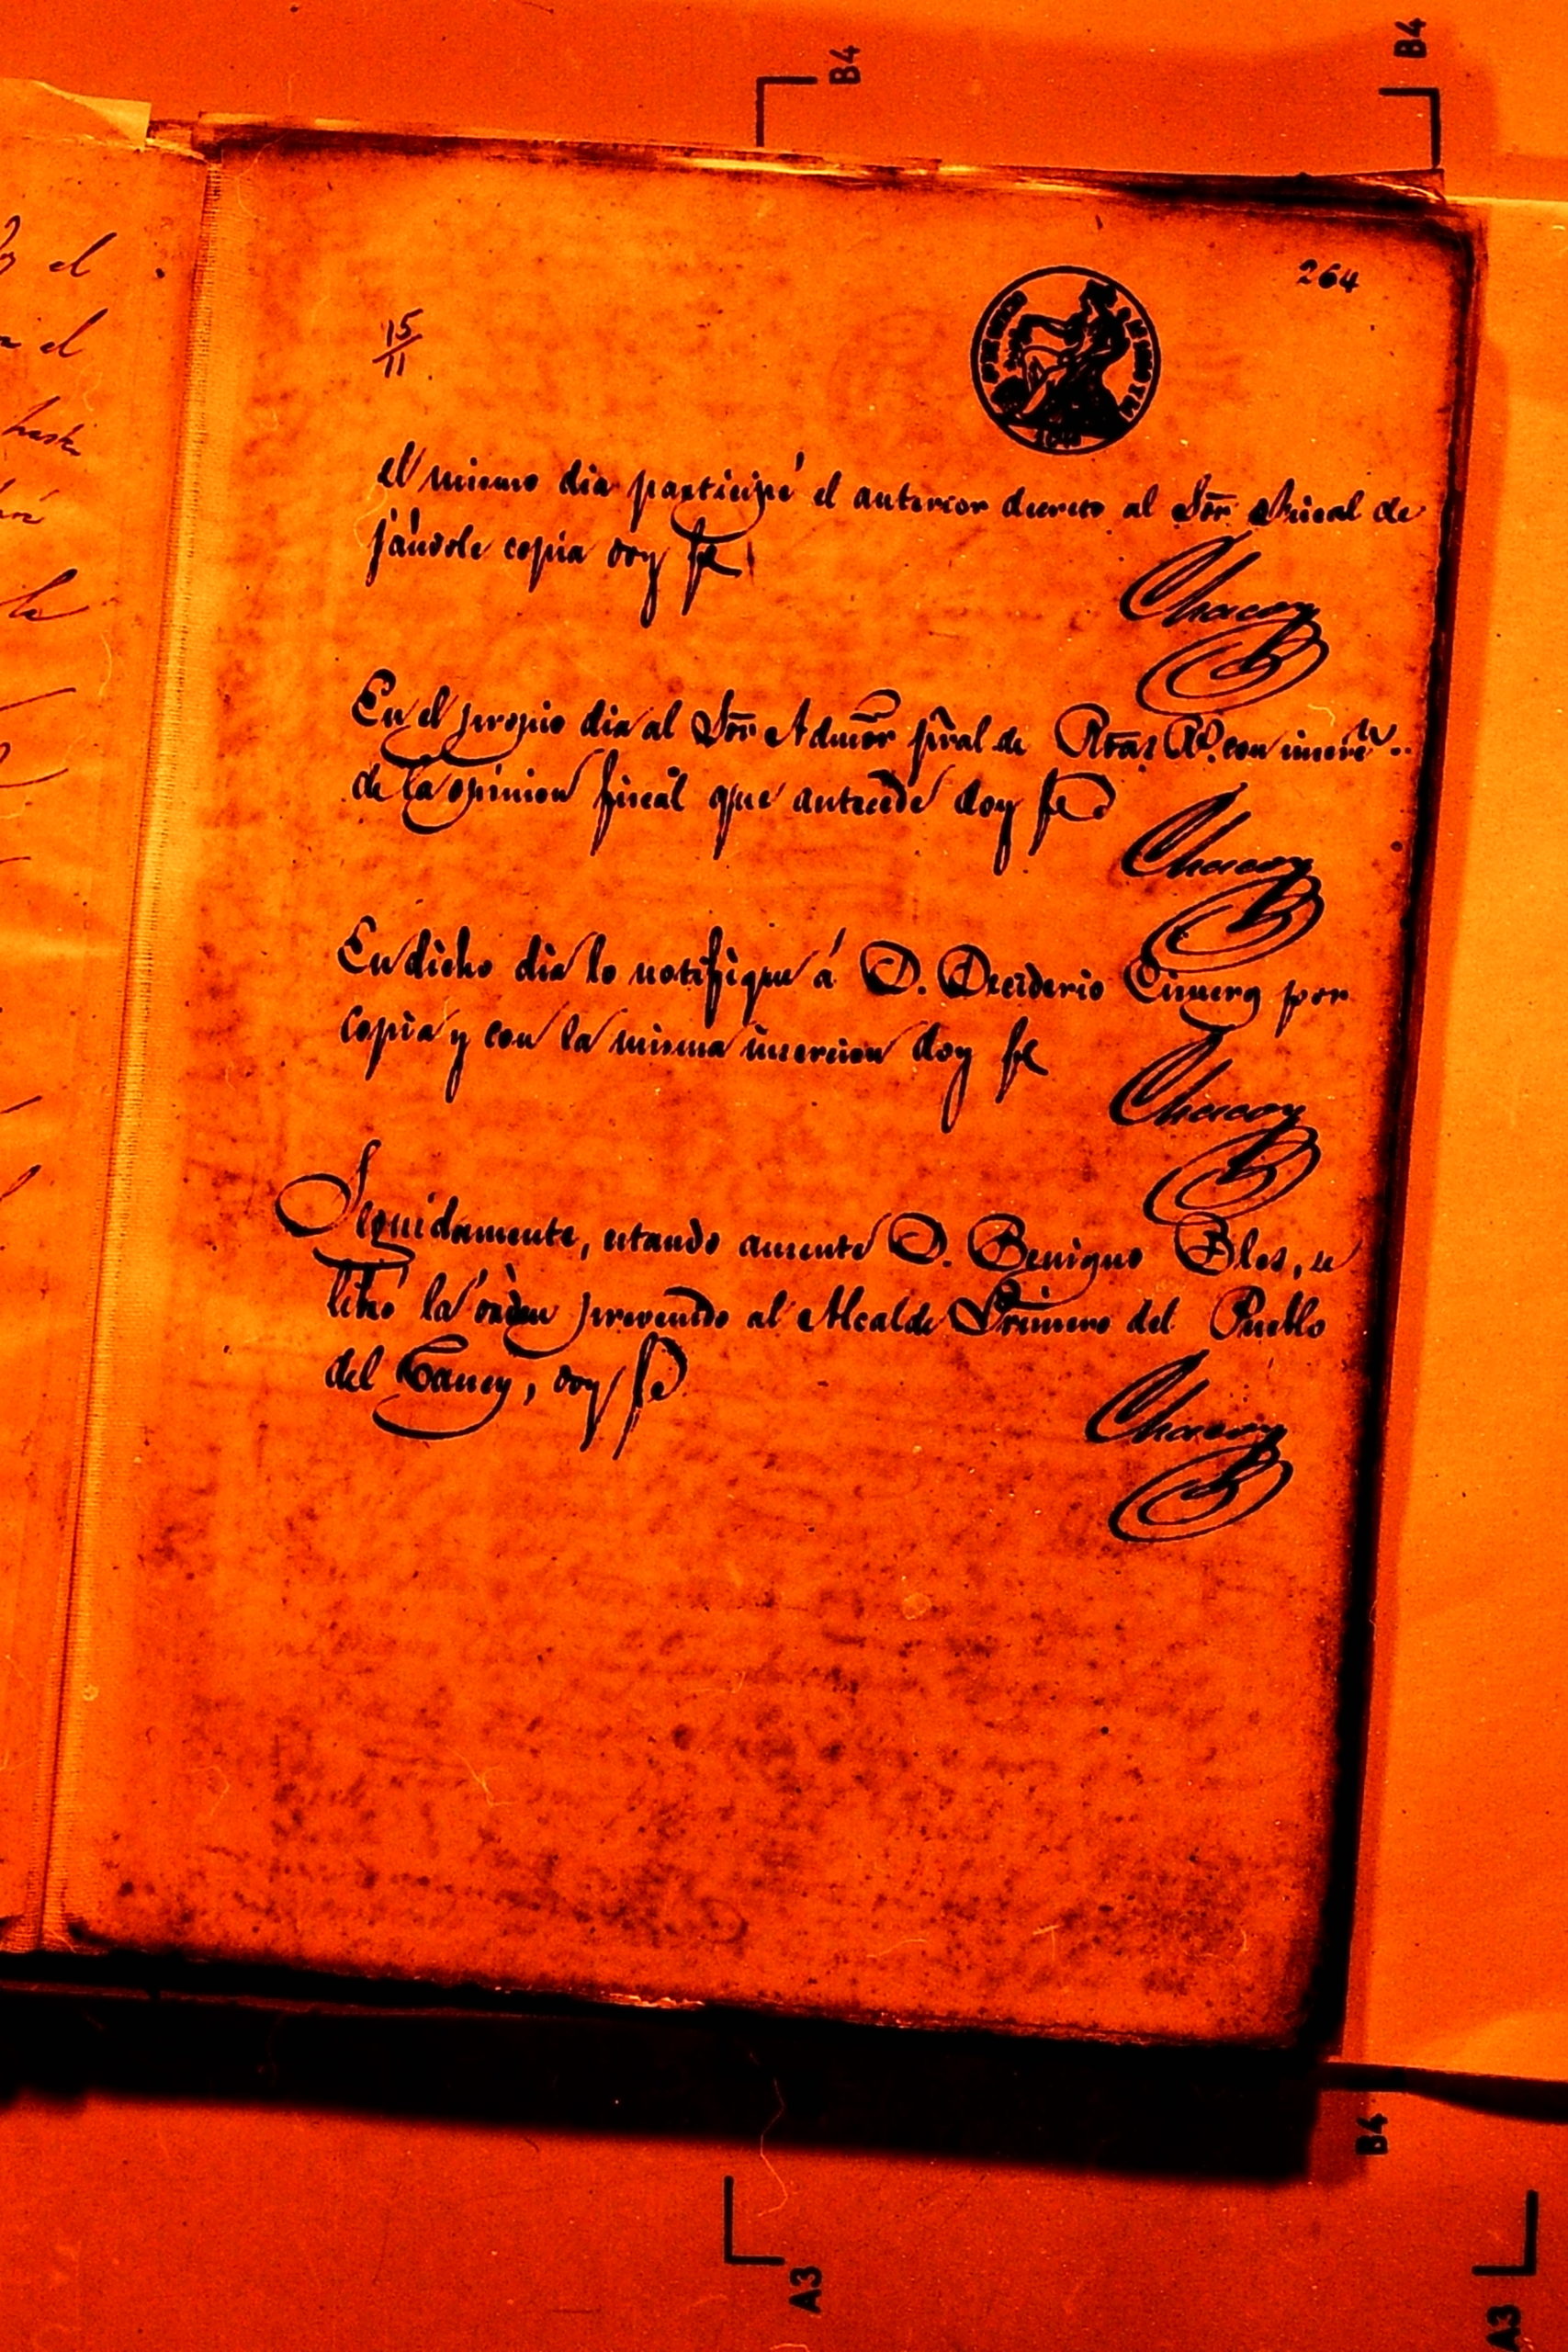 B4
B4
264
15
11
el mismo dia participé el anterior decreto al Sor. Fiscal de
jándole copia doy fe
Chacon
En el propio dia al Sor Admor pral de Rtas Rs. con inser
de la opinion fiscal que antecede doy fe
Chacon
En dicho dia lo notifique á D. Deciderio por
copia y con la misma insercion doy fe
Chacon
Seguidamente, estando ausente D. Benigno Blos, se
libró la orden prevenido al Alcalde Primero del Pueblo
del Caney, doy fe
Chacon
el
el
la
B4
A3
A3